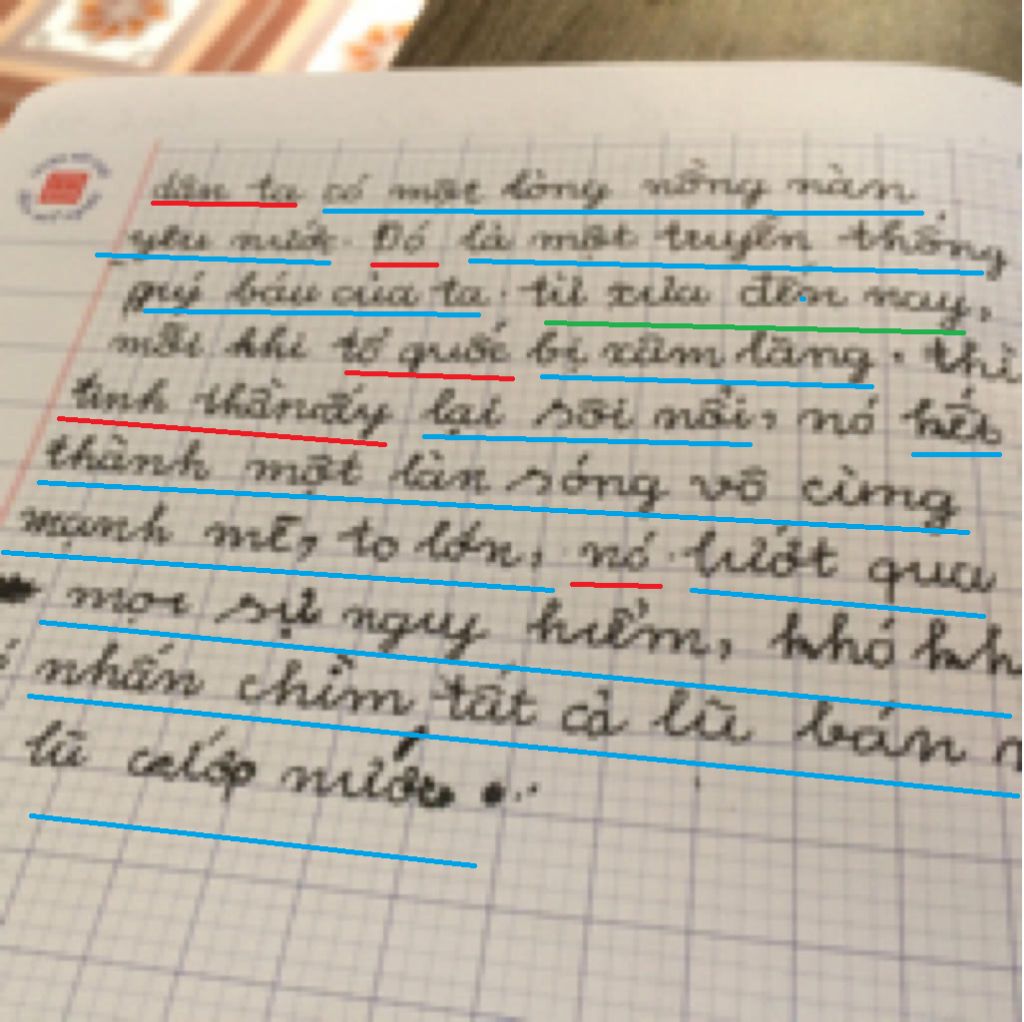 dân ta có một lòng nồng nàn
yêu nước. Đó là một truyền thống
quý báu của ta. từ xưa đến nay,
mỗi khi tổ quốc bị xâm lăng. thì
tinh thần ấy lại sôi nổi, nó kết
thành một làn sóng vô cùng
mạnh mẽ, to lớn, nó lướt qua
mọi sự nguy hiểm, khó kh
nhấn chìm tất cả lũ bán
lũ cướp nước